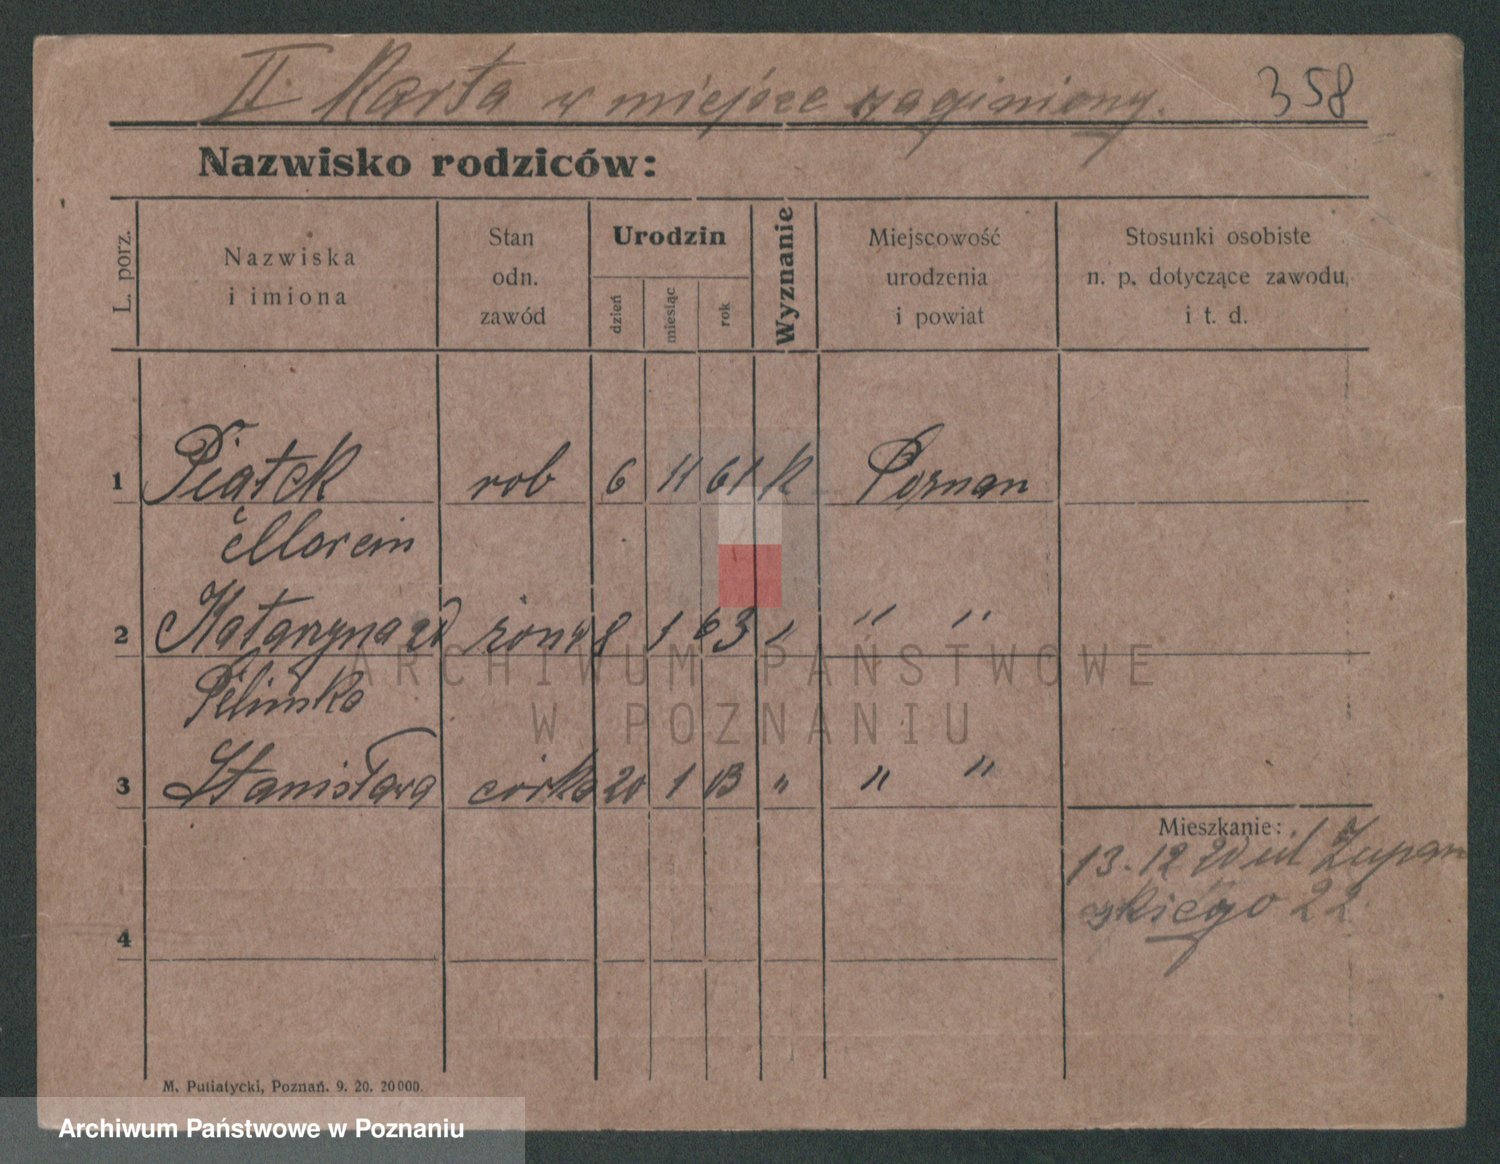 II Karta w miejsce zaginiony.
358
Nazwisko rodziców:
L. porz.
Nazwiska
i imiona
Stan
odn.
zawód
Urodzin
dzień
miesiąc
rok
Wyznanie
Miejscowość
urodzenia
i powiat
Stosunki osobiste
n. p. dotyczące zawodu,
i t. d.
1 Piątek rob 6 11 61 K Poznan
Marcin
2 Katarzyna zd żona 8 1 63 " " "
3 Stanisława córka 20 1 03 " " "
Mieszkanie:
13.12 20 ul Żupan
skiego 22
4
M. Putiatycki, Poznań. 9. 20. 20000.
ARCHIWUM PAŃSTWOWE
W POZNANIU
Archiwum Państwowe w Poznaniu